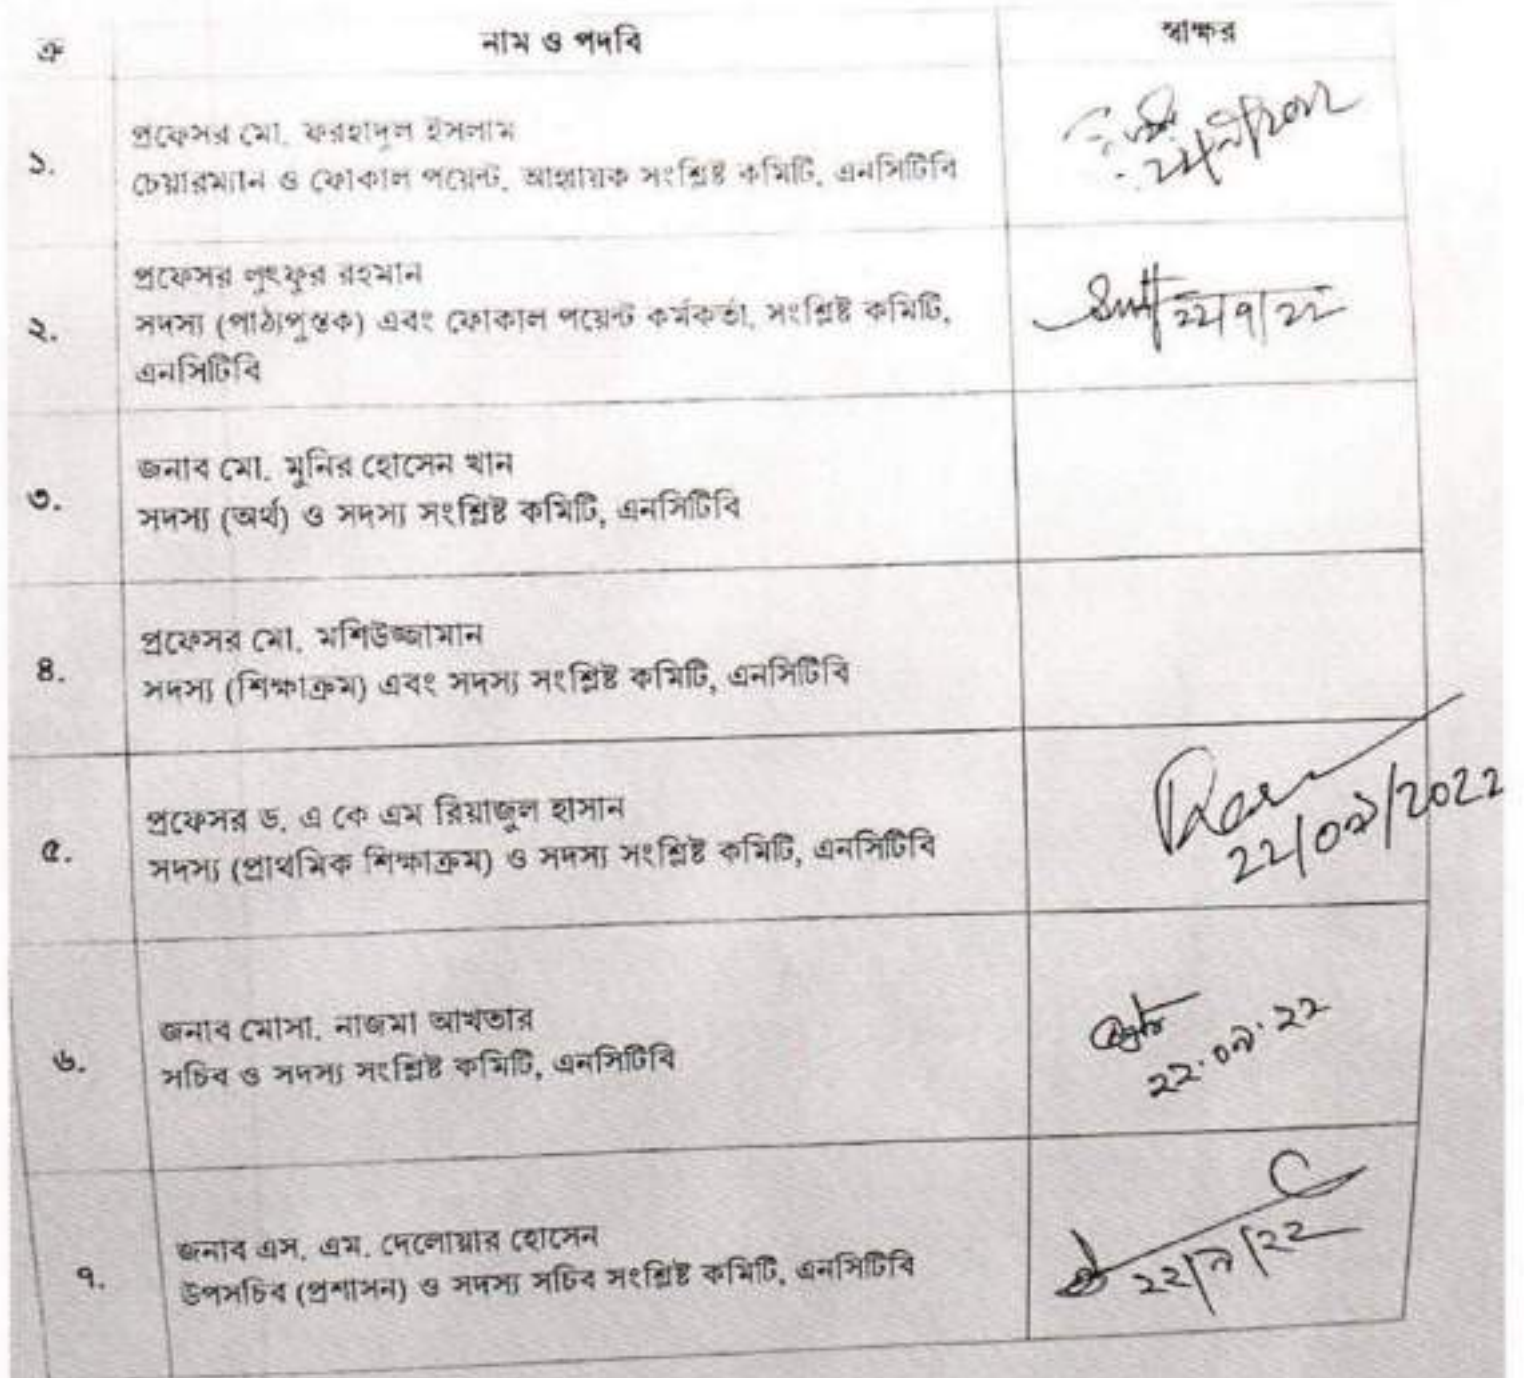 ক্র নাম ও পদবি স্বাক্ষর
১.
প্রফেসর মো. ফরহাদুল ইসলাম
চেয়ারম্যান ও ফোকাল পয়েন্ট, আহ্বায়ক সংশ্লিষ্ট কমিটি, এনসিটিবি
২.
প্রফেসর লুৎফুর রহমান
সদস্য (পাঠ্যপুস্তক) এবং ফোকাল পয়েন্ট কর্মকর্তা, সংশ্লিষ্ট কমিটি,
এনসিটিবি
22/9/22
৩.
জনাব মো. মুনির হোসেন খান
সদস্য (অর্থ) ও সদস্য সংশ্লিষ্ট কমিটি, এনসিটিবি
৪.
প্রফেসর মো. মশিউজ্জামান
সদস্য (শিক্ষাক্রম) এবং সদস্য সংশ্লিষ্ট কমিটি, এনসিটিবি
৫.
প্রফেসর ড. এ কে এম রিয়াজুল হাসান
সদস্য (প্রাথমিক শিক্ষাক্রম) ও সদস্য সংশ্লিষ্ট কমিটি, এনসিটিবি
22/০৯/2022
৬.
জনাব মোসা. নাজমা আখতার
সচিব ও সদস্য সংশ্লিষ্ট কমিটি, এনসিটিবি
২২.০৯.২২
৭.
জনাব এস. এম. দেলোয়ার হোসেন
উপসচিব (প্রশাসন) ও সদস্য সচিব সংশ্লিষ্ট কমিটি, এনসিটিবি
২২/৯/২২